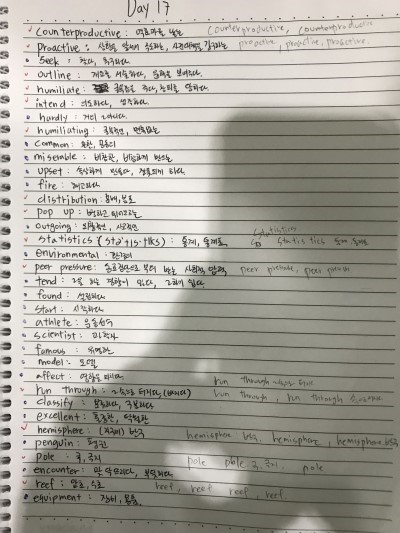 Day 17
counterproductive : 역효과를 낳는 counterproductive, counterproductive
proactive : 상황을 앞서서 주도하는, 사전대책을 강구하는 proactive, proactive, proactive.
seek : 찾다, 추구하다
outline : 개요를 서술하다, 윤곽을 보여주다.
humiliate : 굴욕감을 주다, 창피를 당하다
intend : 의도하다, 작정하다.
hardly : 거의 ~아니다.
humiliating : 굴욕적인, 면목없는
common : 흔한, 공통의
miserable : 비참한, 비참하게 만드는
upset : 속상하게 만들다, 잘못되게 하다.
fire : 해고하다
distribution : 분배, 분포
pop up :
outgoing : 외향적인, 사교적인
statistics (stə'tɪs·tɪks) : 통계, 통계표 statistics 통계, 통계표
environmental : 환경의
peer pressure : 동료집단으로 부터 받는 사회적 압력 peer pressure, peer pressure
tend : 하는 경향이 있다, 그하기 쉽다
found : 설립하다
start : 시작하다
athlete : 운동선수
scientist : 과학자
famous : 유명한
model : 모델
affect : 영향을 미치다. run through
run through : ~속으로 퍼지다, run through, run through
classify : 분류하다, 구분하다
excellent : 훌륭한, 탁월한
hemisphere : (지구의) 반구 hemisphere 반구. hemisphere, hemisphere 반구
penguin : 펭귄
pole : 극, 극지 pole pole 극, 극지 pole
encounter : 맞닥뜨리다, 부딪히다
reef : 암초 reef, reef reef, reef.
equipment : 장비, 용품